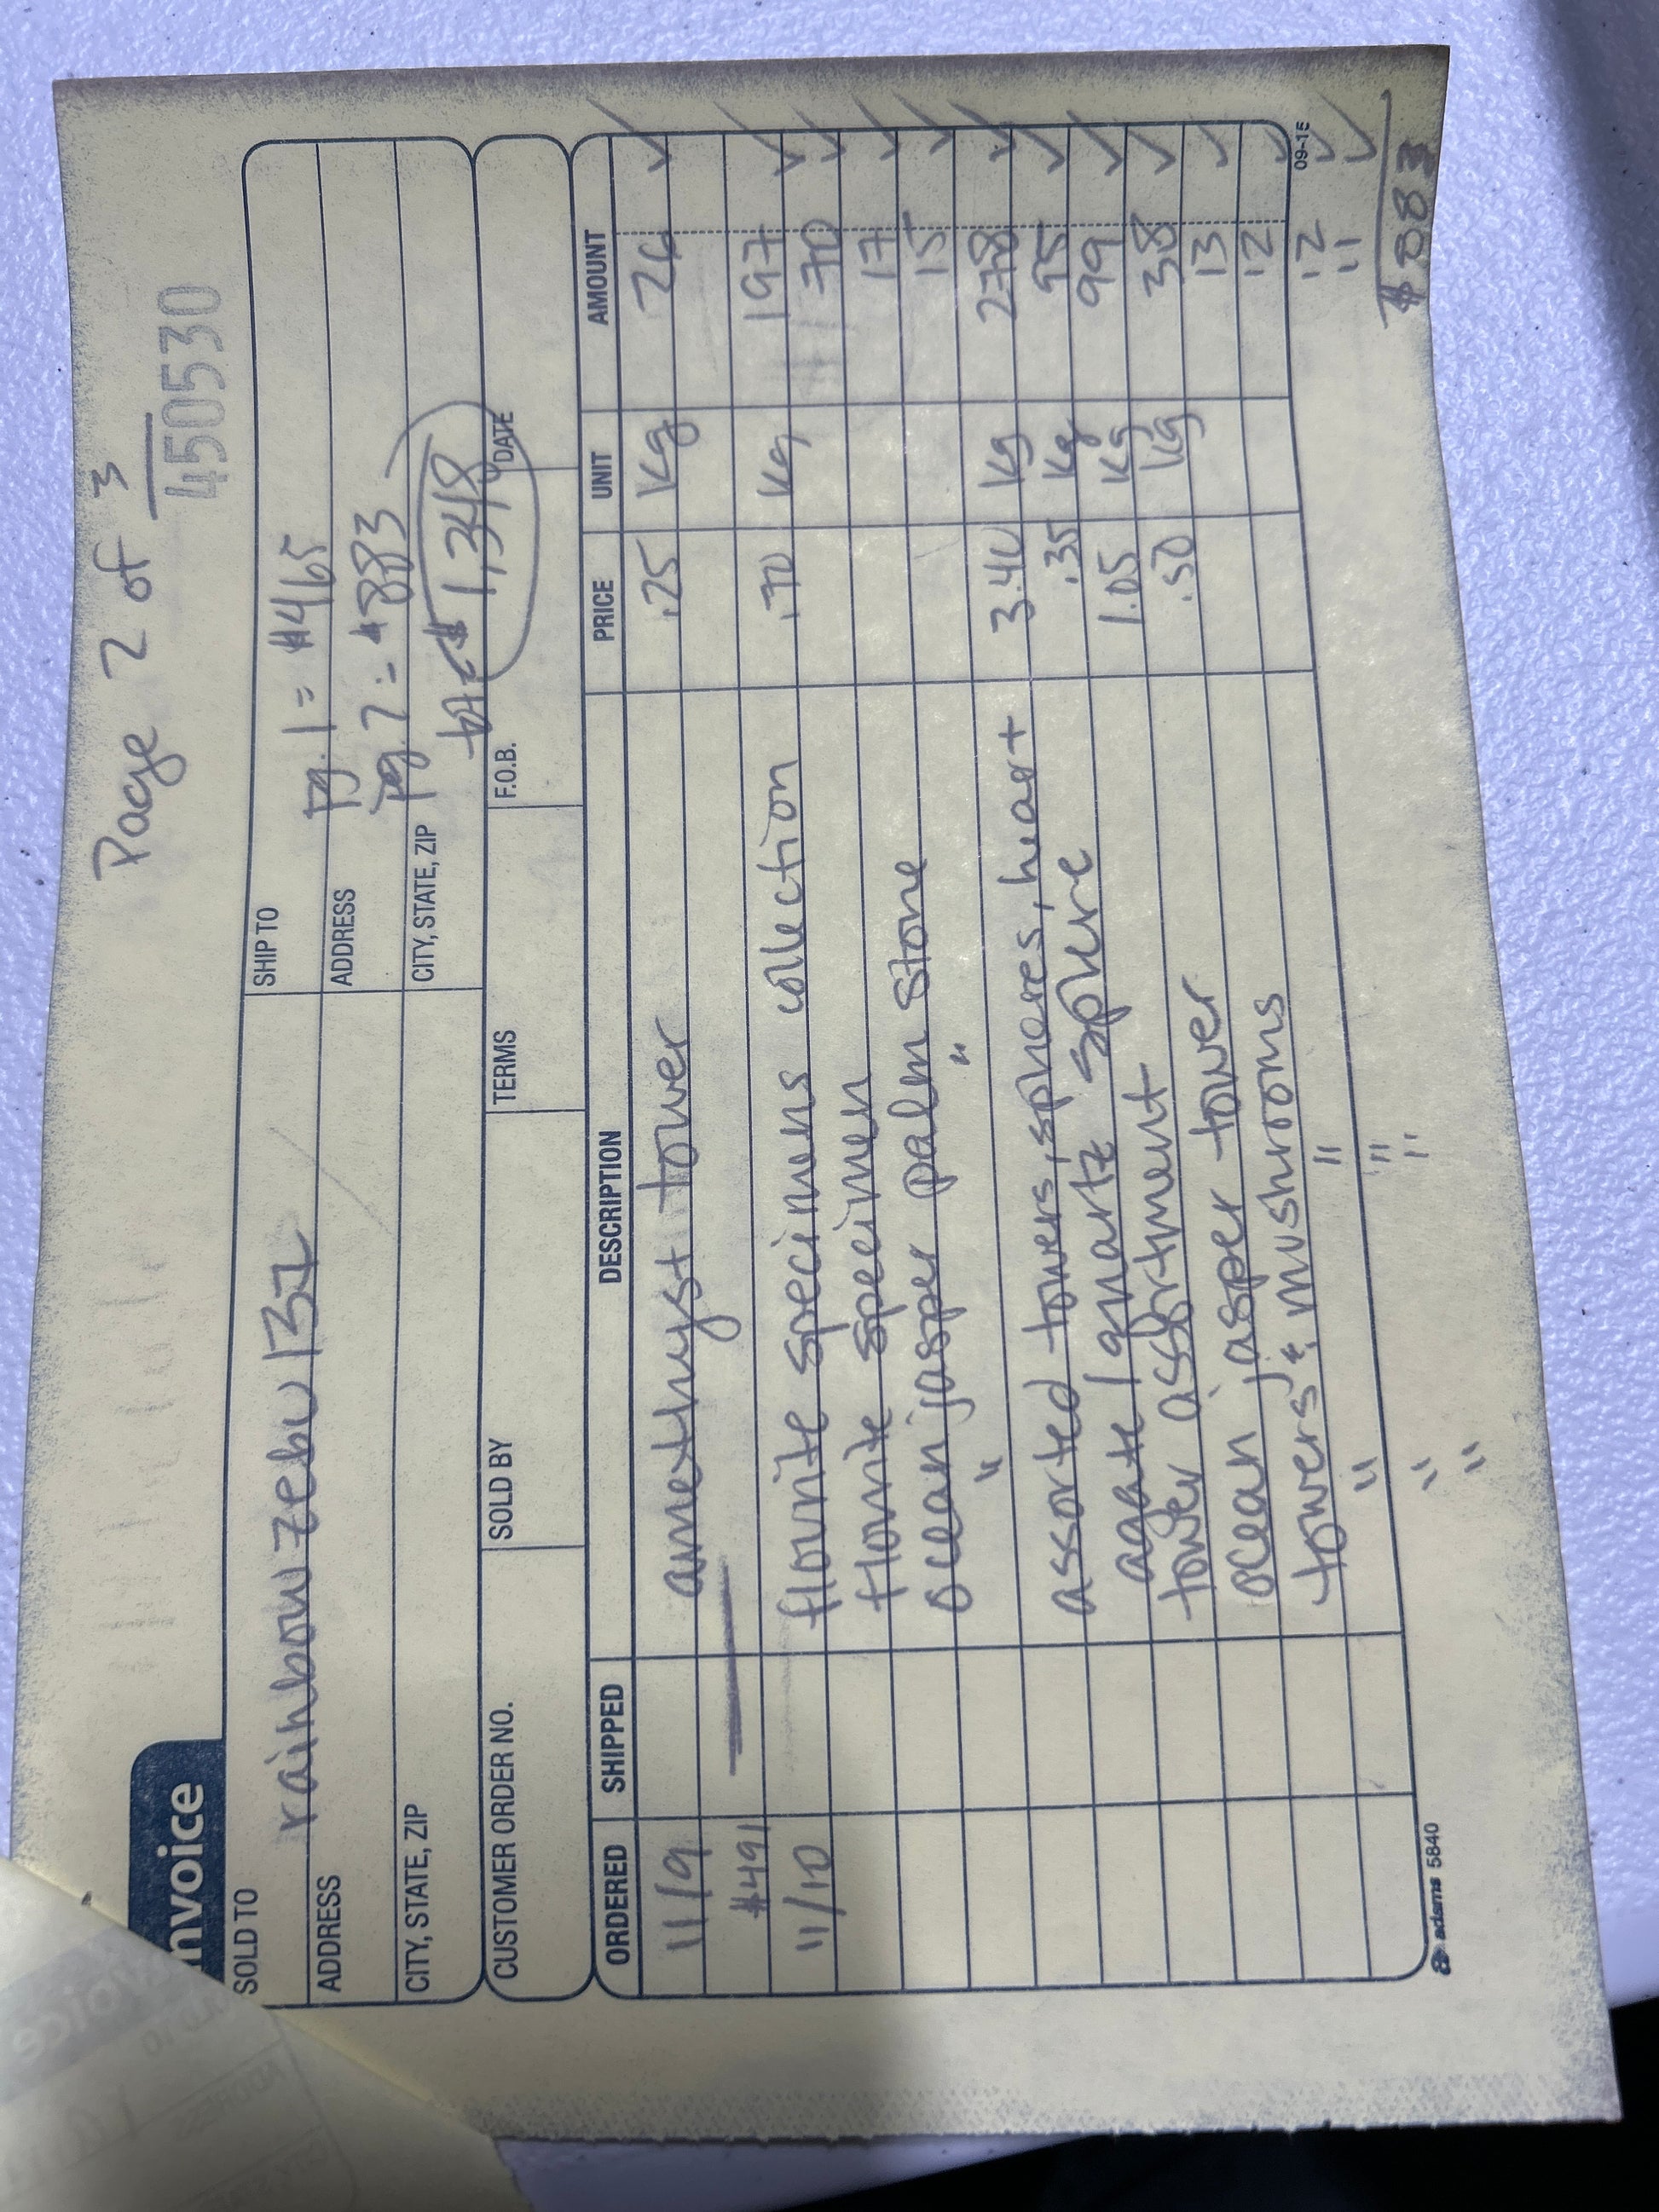 Page 2 of 3
450530
nvoice
SOLD TO rainbowzebu137
SHIP TO pg. 1 = $465
ADDRESS
ADDRESS pg. 2 = $883
CITY, STATE, ZIP
CITY, STATE, ZIP $1,348
CUSTOMER ORDER NO. SOLD BY TERMS F.O.B. DATE
ORDERED SHIPPED DESCRIPTION PRICE UNIT AMOUNT
11/9 amethyst tower .25 Kg 26
#491
11/10 flourite specimens collection .70 Kg 197
flourite specimen 70
ocean jasper palm stone 17
" " 15
assorted towers, spheres, heart 3.40 Kg 278
agate/quartz sphere .35 Kg 95
tower assortment 1.05 Kg 99
ocean jasper tower .50 Kg 38
towers & mushrooms 13
" " 12
" " 12
" " 11
$883
adams 5840
09-15